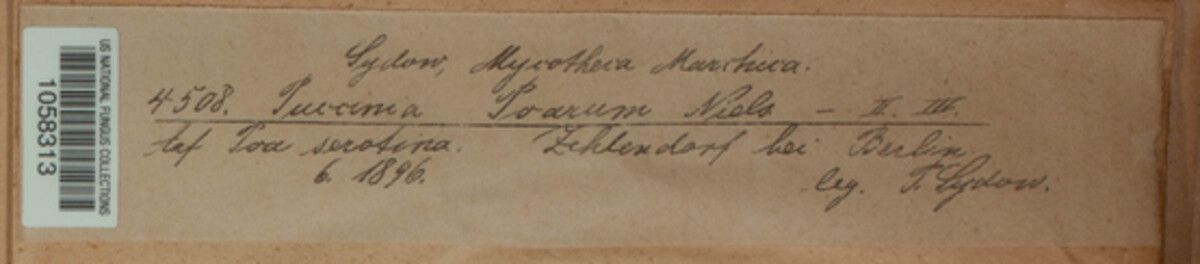 US NATIONAL FUNGUS COLLECTIONS
10583313
Sydow, Mycotheca Marchica.
4508. Puccinia Poarum Niels — II. III.
Poa serotina. Zehlendorf bei Berlin
6. 1896.
leg. P. Sydow.